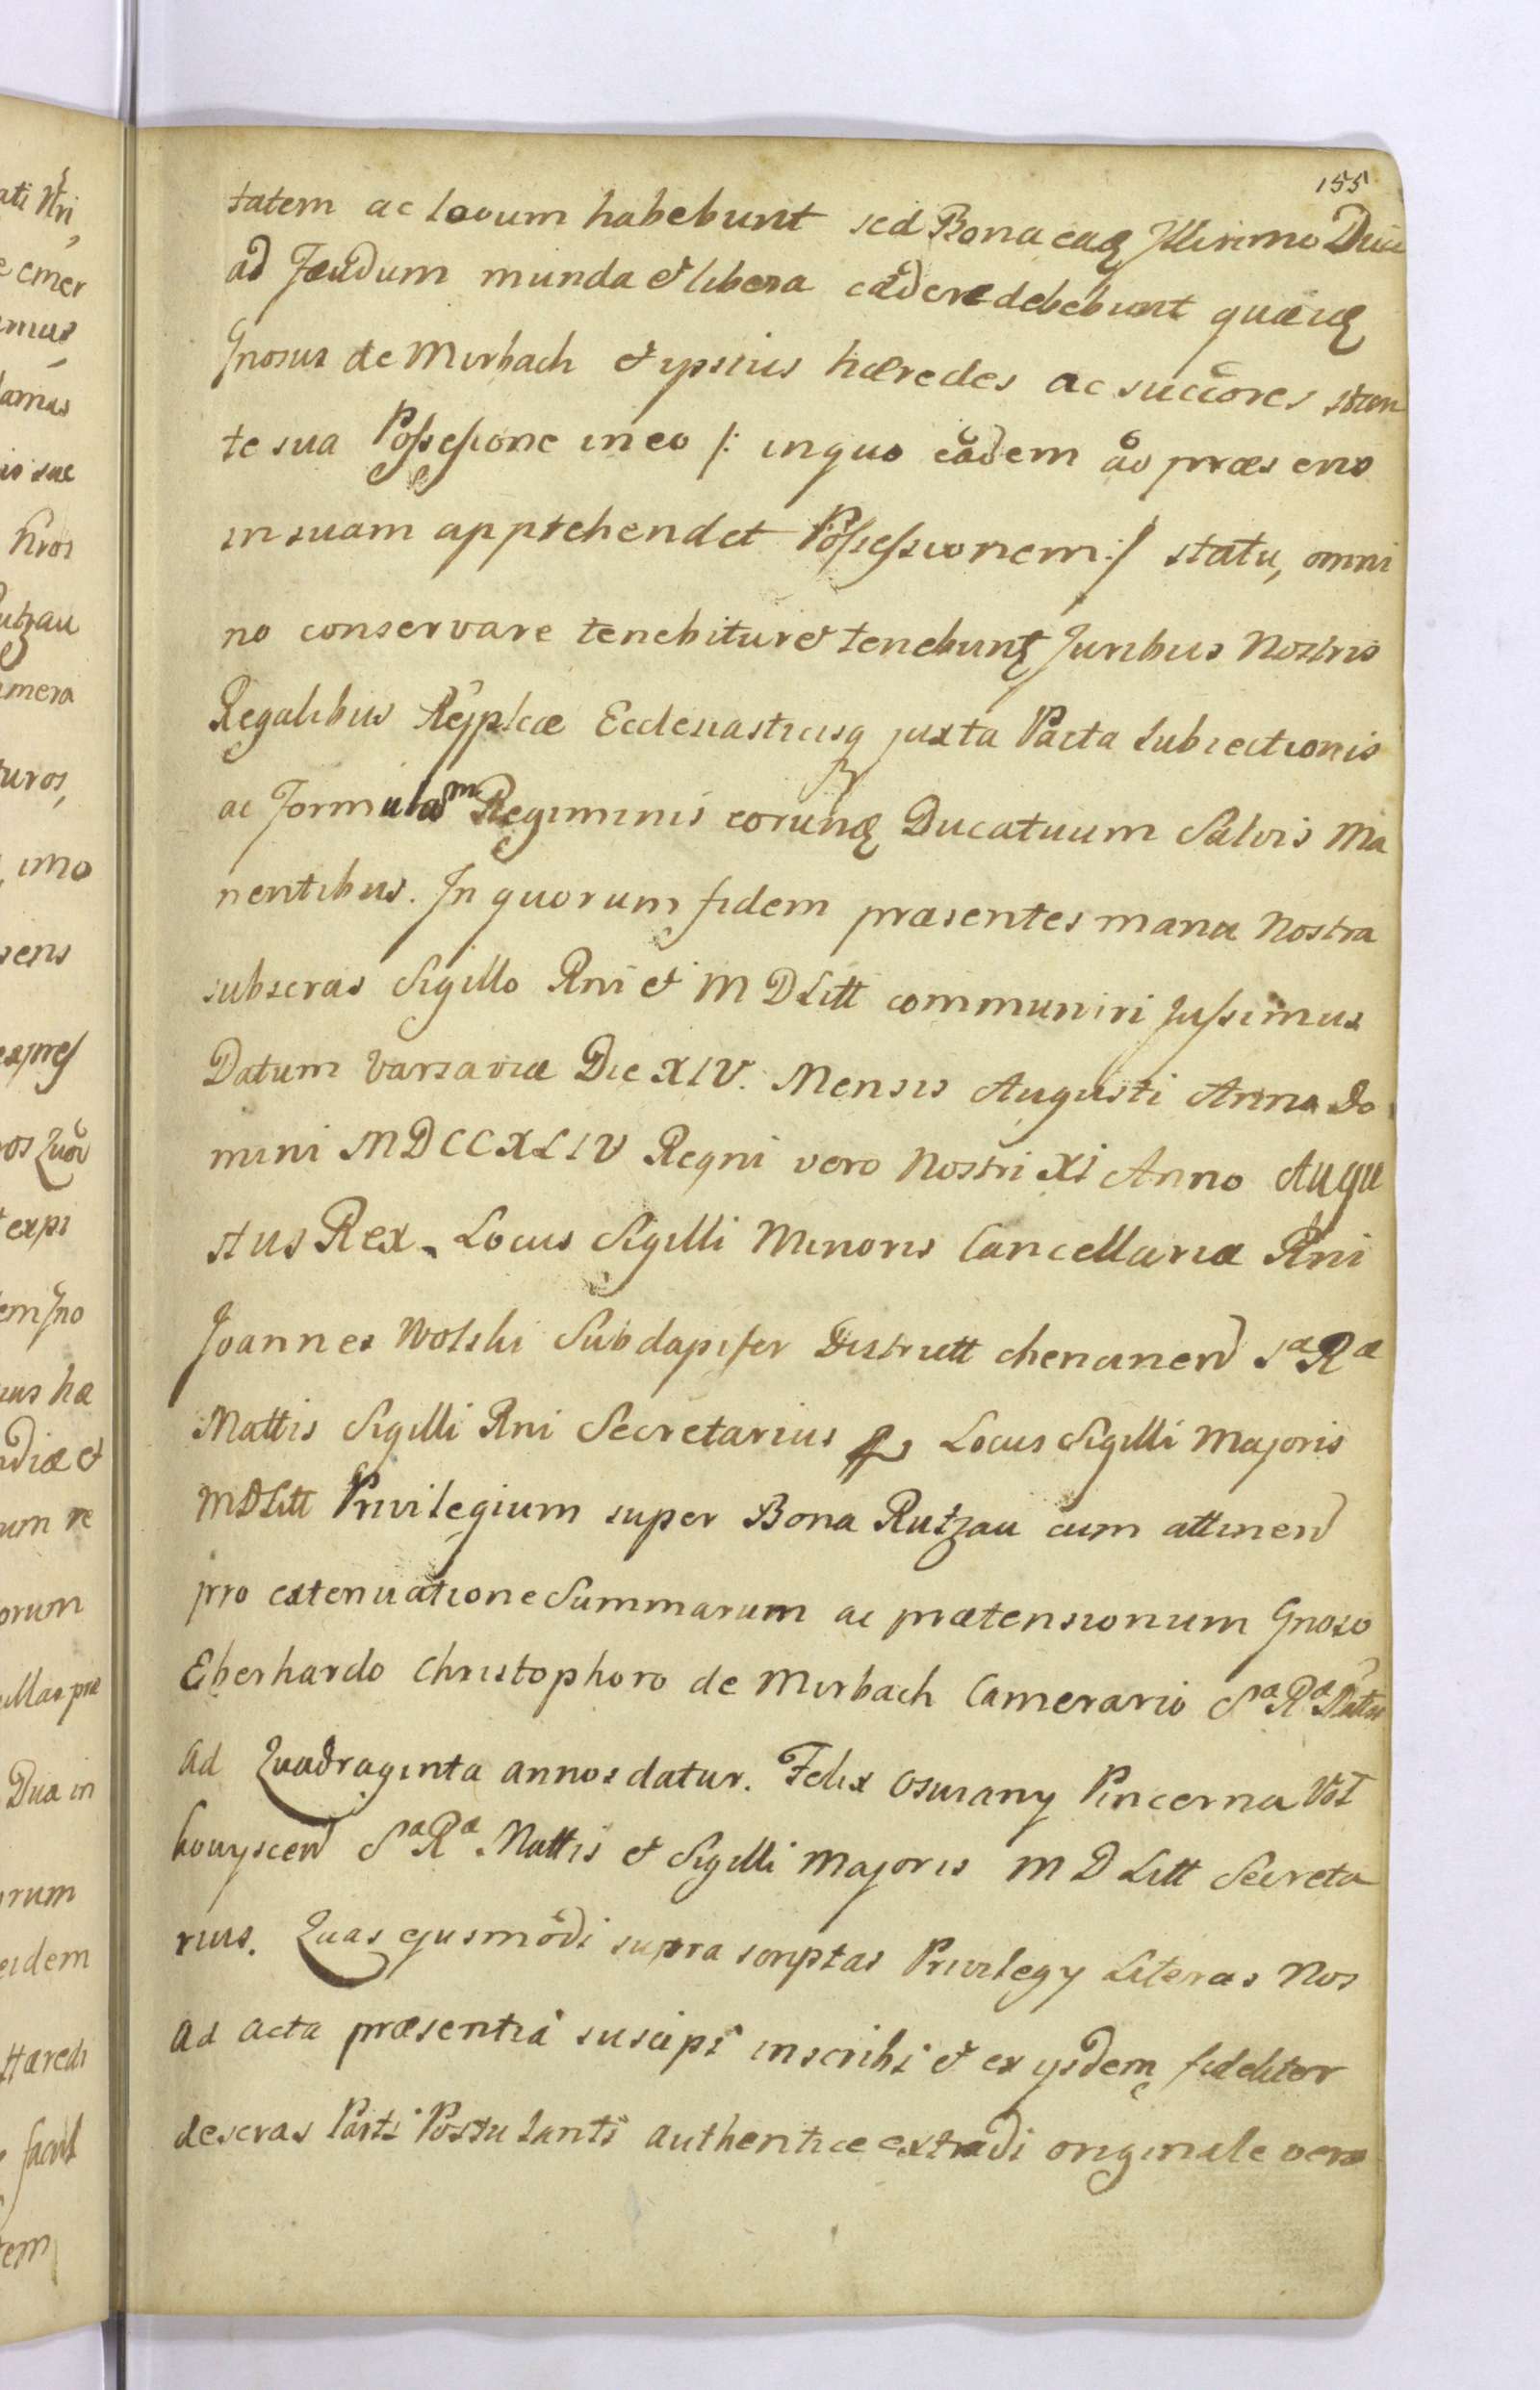 155
tatem ac locum habebunt sed Bona eadq Jllirimo Duci
ad Fœudum munda et libera cadere debebunt quæuq
Gnosus de Mirbach et ipsius hæredes ac succores stan
te sua Possessione in eo /: in quo eadem ad præsens
in suam apprehendet Possessionem :/ statu, omni
no conservare tenebitur et tenebuntq Juribus Nostris
Regalibus Reyplcæ Ecclesiasticisq juxta Pacta Subiectionis
ac Formulam Regiminis eorundq Ducatuum Salvis Ma
nentibus. In quorum fidem præsentes manu Nostra
subscras Sigillo Rni et M D Litt communiri Jussimus
Datum Varsaviæ Die XIV. Mensis Augusti Anno Do
mini MDCCXLIV Regni vero Nostri XI Anno Augu
stus Rex. Locus Sigilli Minoris Cancellariæ Rni
Joannes Wolski Subdapifer Districtt chencinend Sæ Ræ
Mattis Sigilli Rni Secretarius Locus Sigilli Majoris
MDLitt Privilegium super Bona Rutzau cum attinend
pro extenuatione Summarum ac prætensionum Gnoso
Eberhardo Christophoro de Mirbach Camerario Sæ Ræ Mattis
ad Quadraginta annos datur. Felix Owsiany Pincerna Voł
kowyscend Sæ Ræ Mattis et Sigilli Majoris M D Litt Secreta
rius. Quas ejusmodi supra scriptas Privilegy Literas Nos
ad acta præsentia suscipi inscribi et ex ysdem fideliter
descras Parti Postulanti authentice extradi originale vero
ati Nri,
e emer
mus
is suæ
hros
utzau
mera
turos,
imo
sens
expres
os Quor
expi
em Gno
ius hæ
diæ et
um re
orum
illas præ
Dua in
orum
eidem
Hæredi
facul
tem